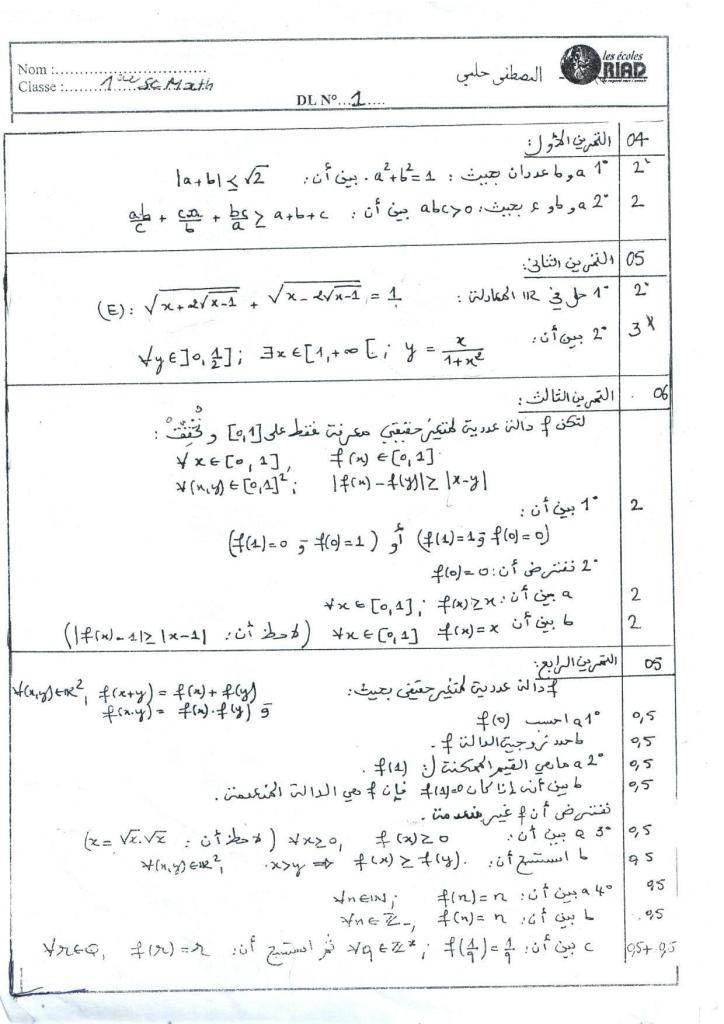 les écoles
RIAD
المصطفى حلمي
Nom :
Classe : 1ère Sc Math
DL N°...1....
التمرين الأول: 04
1° a و b عددان بحيث : a²+b²=1 . بين أن: |a+b| ≤ √2 2
2° a و b و c بحيث: abc>0 بين أن : ab/c + ca/b + bc/a ≥ a+b+c 2
التمرين الثاني: 05
1° حل في IR المعادلة : (E): √(x+2√(x-1)) + √(x-2√(x-1)) = 1 2
2° بين أن: ∀y∈]0,1/2]; ∃x∈[1,+∞[; y = x/(1+x²) 3
التمرين الثالث: 06
لتكن f دالة عددية لمتغير حقيقي معرفة فقط على [0,1] و تحقق :
∀x∈[0,1], f(x)∈[0,1]
∀(x,y)∈[0,1]²; |f(x)-f(y)| ≥ |x-y|
1° بين أن : 2
(f(0)=0 و f(1)=1) أو (f(0)=1 و f(1)=0)
2° نفترض أن: f(0)=0
a بين أن: ∀x∈[0,1]; f(x)≥x 2
b بين أن ∀x∈[0,1] f(x)=x (لاحظ أن: |f(x)-1|≥|x-1|) 2
التمرين الرابع: 05
f دالة عددية لمتغير حقيقي بحيث: ∀(x,y)∈IR², f(x+y)=f(x)+f(y)
و f(x.y)=f(x).f(y)
1° a احسب f(0) 0,5
b حدد زوجية الدالة f. 0,5
2° a ماهي القيم الممكنة ل: f(1). 0,5
b بين أنه إذا كان f(1)=0 فإن f هي الدالة المنعدمة. 0,5
نفترض أن f غير منعدمة.
3° a بين أن: ∀x≥0, f(x)≥0 (لاحظ أن: x=√x.√x) 0,5
b استنتج أن: ∀(x,y)∈IR², x>y ⇒ f(x)≥f(y). 0,5
4° a بين أن: ∀n∈IN; f(n)=n 0,5
b بين أن: ∀n∈ℤ₋, f(n)=n 0,5
c بين أن: ∀q∈ℤ*; f(1/q)=1/q ثم استنتج أن: ∀r∈Q, f(r)=r 0,5+0,5